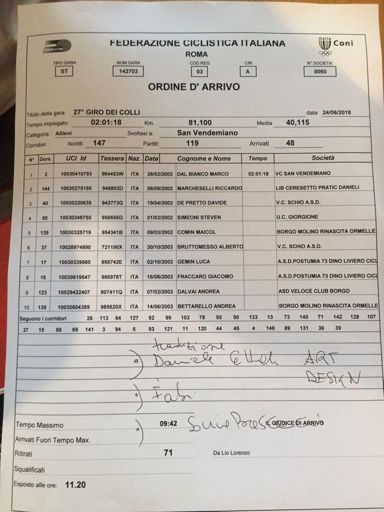 FEDERAZIONE CICLISTICA ITALIANA
ROMA
Coni
TIPO GARA NUM.GARA COD.REG CIN N° SOCIETA'
ST 142703 03 A 0060
ORDINE D' ARRIVO
Titolo della gara: 27° GIRO DEI COLLI data 24/06/2018
Tempo impiegato : 02:01:18 Km. 81,100 Media 40,115
Categoria : Allievi Svoltasi a: San Vendemiano
Corridori : Iscritti 147 Partiti: 119 Arrivati 48
N° Dors. UCI Id Tessera Naz. Data Cognome e Nome Tempo Società
1 2 10030410793 964453W ITA 26/02/2002 DAL BIANCO MARCO 02:01:18 VC SAN VENDEMIANO
2 144 10030275195 948802D ITA 06/08/2002 MARCHESELLI RICCARDO LIB CERESETTO PRATIC DANIELI
3 40 10030220635 942773G ITA 19/04/2002 DE PRETTO DAVIDE V.C. SCHIO A.S.D.
4 50 10030348755 956655G ITA 01/02/2002 SIMEONI STEVEN U.C. GIORGIONE
5 139 10030325719 954341B ITA 09/03/2002 COMIN MAICOL BORGO MOLINO RINASCITA ORMELLE
6 37 10028974690 721190X ITA 30/10/2003 BRUTTOMESSO ALBERTO V.C. SCHIO A.S.D.
7 17 10030339560 955742E ITA 02/10/2002 GEMIN LUCA A.S.D.POSTUMIA 73 DINO LIVIERO CICL
8 16 10030619547 986978T ITA 16/08/2003 FRACCARO GIACOMO A.S.D.POSTUMIA 73 DINO LIVIERO CICL
9 123 10029422407 807411Q ITA 07/02/2003 DALVAI ANDREA ASD VELOCE CLUB BORGO
10 138 10030604389 985620X ITA 14/06/2003 BETTARELLO ANDREA BORGO MOLINO RINASCITA ORMELLE
Seguono i corridori 26 113 64 127 92 99 102 78 55 90 133 13 73 140 71 142 128 107
27 15 95 69 141 3 94 5 93 121 11 120 44 45 4 146 89 131 36 39
ART
DESIGN
Fabi
Tempo Massimo 09:42 IL GIUDICE DI ARRIVO
Arrivati Fuori Tempo Max.
Ritirati 71 Da Lio Lorenzo
Squalificati
Esposto alle ore: 11.20